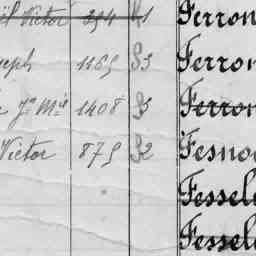 Victor 394 S1 Ferron
seph 1165 S3 Ferron
Jn Mie 1408 S3 Ferron
Victor 875 S2 Fesno
Fessel
Fessel